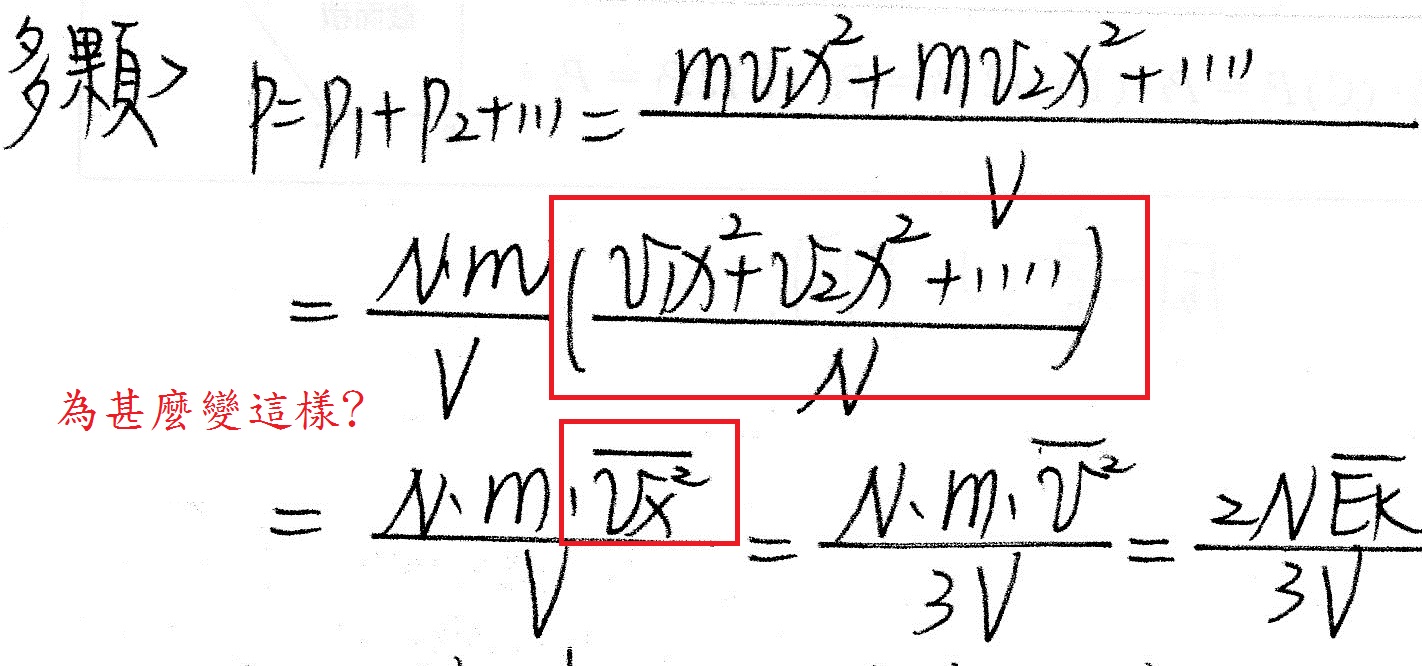 多顆> P=P₁+P₂+... = (mv₁x²+mv₂x²+....)/V
= N·m/V ( (v₁x²+v₂x²+.....)/N )
為甚麼變這樣?
= N·m·v̅x̅²̅/V = N·m·v̅²/3V = 2NE̅k̅/3V